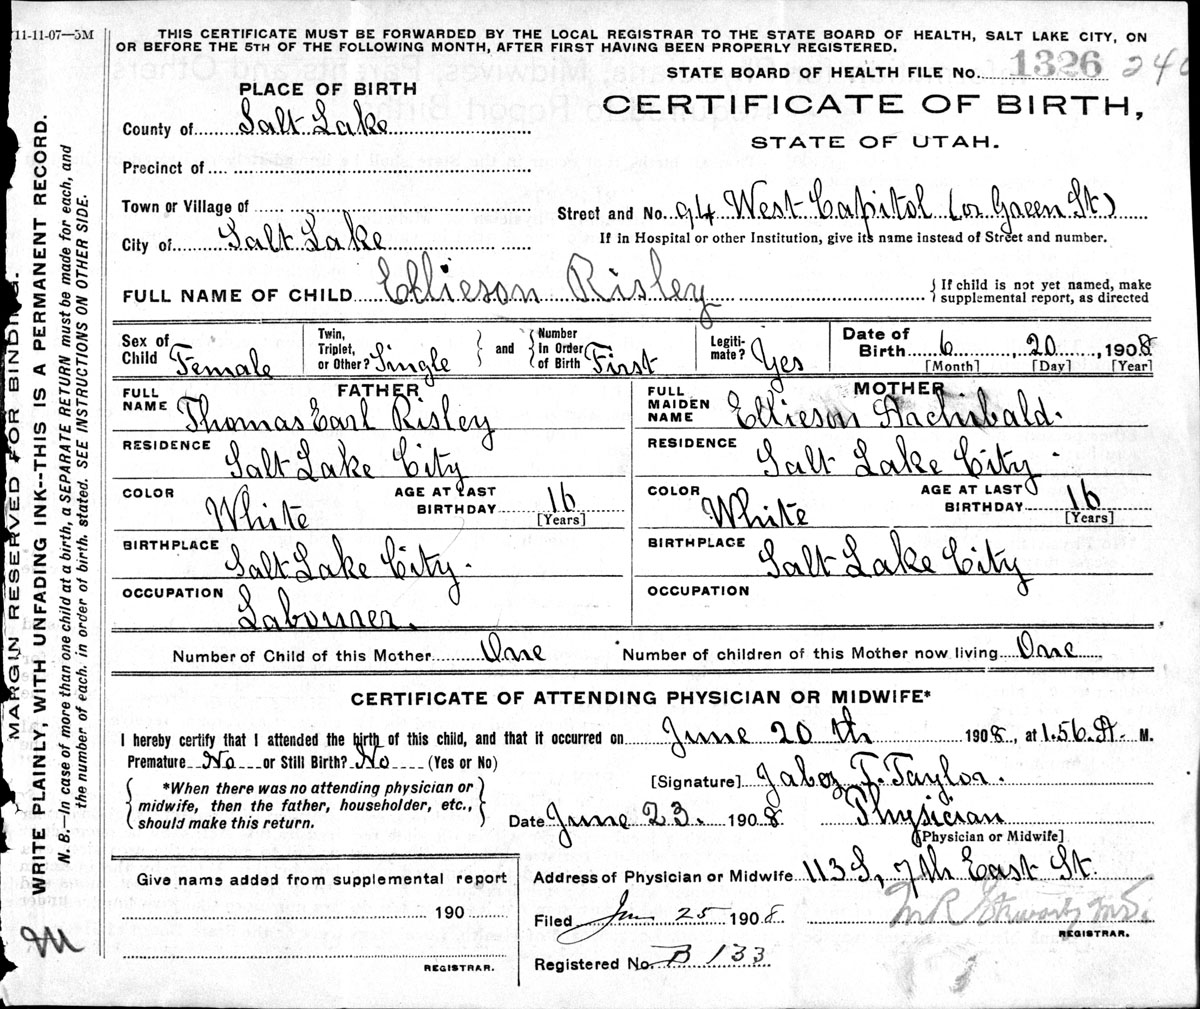 11-11-07—5M
THIS CERTIFICATE MUST BE FORWARDED BY THE LOCAL REGISTRAR TO THE STATE BOARD OF HEALTH, SALT LAKE CITY, ON
OR BEFORE THE 5TH OF THE FOLLOWING MONTH, AFTER FIRST HAVING BEEN PROPERLY REGISTERED.
STATE BOARD OF HEALTH FILE No. 1326 240
PLACE OF BIRTH
CERTIFICATE OF BIRTH,
STATE OF UTAH.
County of Salt Lake
Precinct of
Town or Village of
Street and No. 94 West Capitol (or Green St)
City of Salt Lake
If in Hospital or other Institution, give its name instead of Street and number.
FULL NAME OF CHILD Ellieson Risley
If child is not yet named, make
supplemental report, as directed
Sex of Child Female
Twin, Triplet, or Other? Single
and Number In Order of Birth First
Legiti-mate? Yes
Date of Birth 6, 20, 1908
[Month] [Day] [Year]
FATHER
FULL NAME Thomas Earl Risley
RESIDENCE Salt Lake City
COLOR White AGE AT LAST BIRTHDAY 16 [Years]
BIRTHPLACE Salt Lake City.
OCCUPATION Labourer.
MOTHER
FULL MAIDEN NAME Ellieson Archibald.
RESIDENCE Salt Lake City.
COLOR White AGE AT LAST BIRTHDAY 16 [Years]
BIRTHPLACE Salt Lake City
OCCUPATION
Number of Child of this Mother One Number of children of this Mother now living One
CERTIFICATE OF ATTENDING PHYSICIAN OR MIDWIFE*
I hereby certify that I attended the birth of this child, and that it occurred on June 20th 1908, at 1.56 A. M.
Premature No or Still Birth? No (Yes or No)
*When there was no attending physician or
midwife, then the father, householder, etc.,
should make this return.
[Signature] Jabez T. Taylor.
Date June 23. 1908 Physician
[Physician or Midwife]
Address of Physician or Midwife 113 S, 7th East St.
Give name added from supplemental report
190
REGISTRAR.
Filed Jun 25 1908.
REGISTRAR.
Registered No. B 133
MARGIN RESERVED FOR BINDING.
WRITE PLAINLY, WITH UNFADING INK--THIS IS A PERMANENT RECORD.
N. B.—In case of more than one child at a birth, a SEPARATE RETURN must be made for each, and
the number of each, in order of birth, stated. SEE INSTRUCTIONS ON OTHER SIDE.